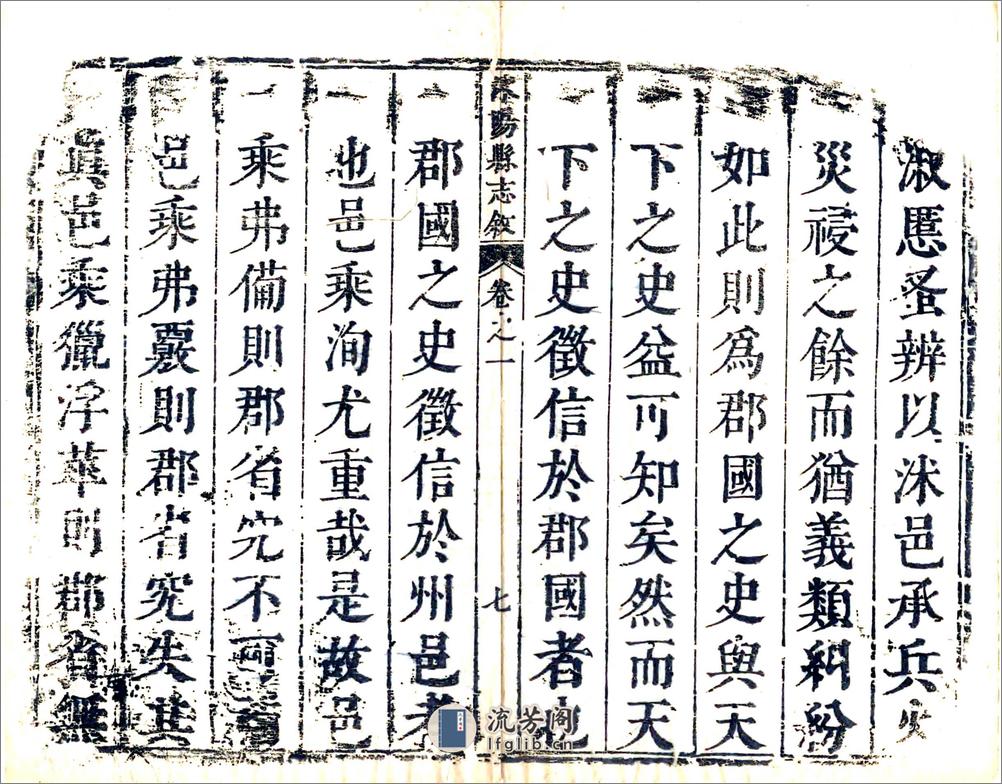 淑慝蚤辨以沭邑承兵火
災祲之餘而猶義類糾紛
如此則爲郡國之史與天
下之史益可知矣然而天
下之史徵信於郡國者也
沭陽縣志敘 卷之一 七
郡國之史徵信於州邑者
也邑乘洵尤重哉是故邑
乘弗備則郡省究不可
邑乘弗覈則郡省究失其
眞邑乘獵浮華則郡省無
流芳阁
lfglib.cn